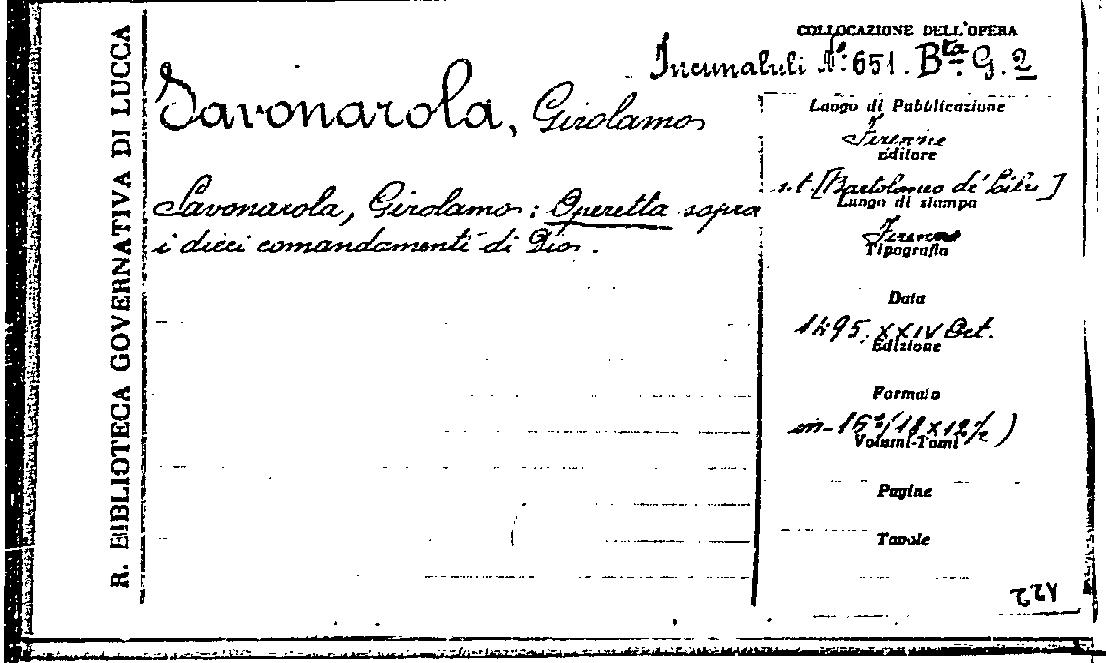 R. BIBLIOTECA GOVERNATIVA DI LUCCA
COLLOCAZIONE DELL'OPERA
Incunaluli N.º 651. Bta. G. 2
Savonarola, Girolamo
Savonarola, Girolamo: Operetta sopra
i dieci comandamenti di Dio.
Luogo di Pubblicazione
Firenze
Editore
s.t. [Bartolomeo de' Libri]
Luogo di stampa
Firenze
Tipografia
Data
1495. XXIV Oct.
Edizione
Formato
Volumi-Tomi
Pagine
Tavole